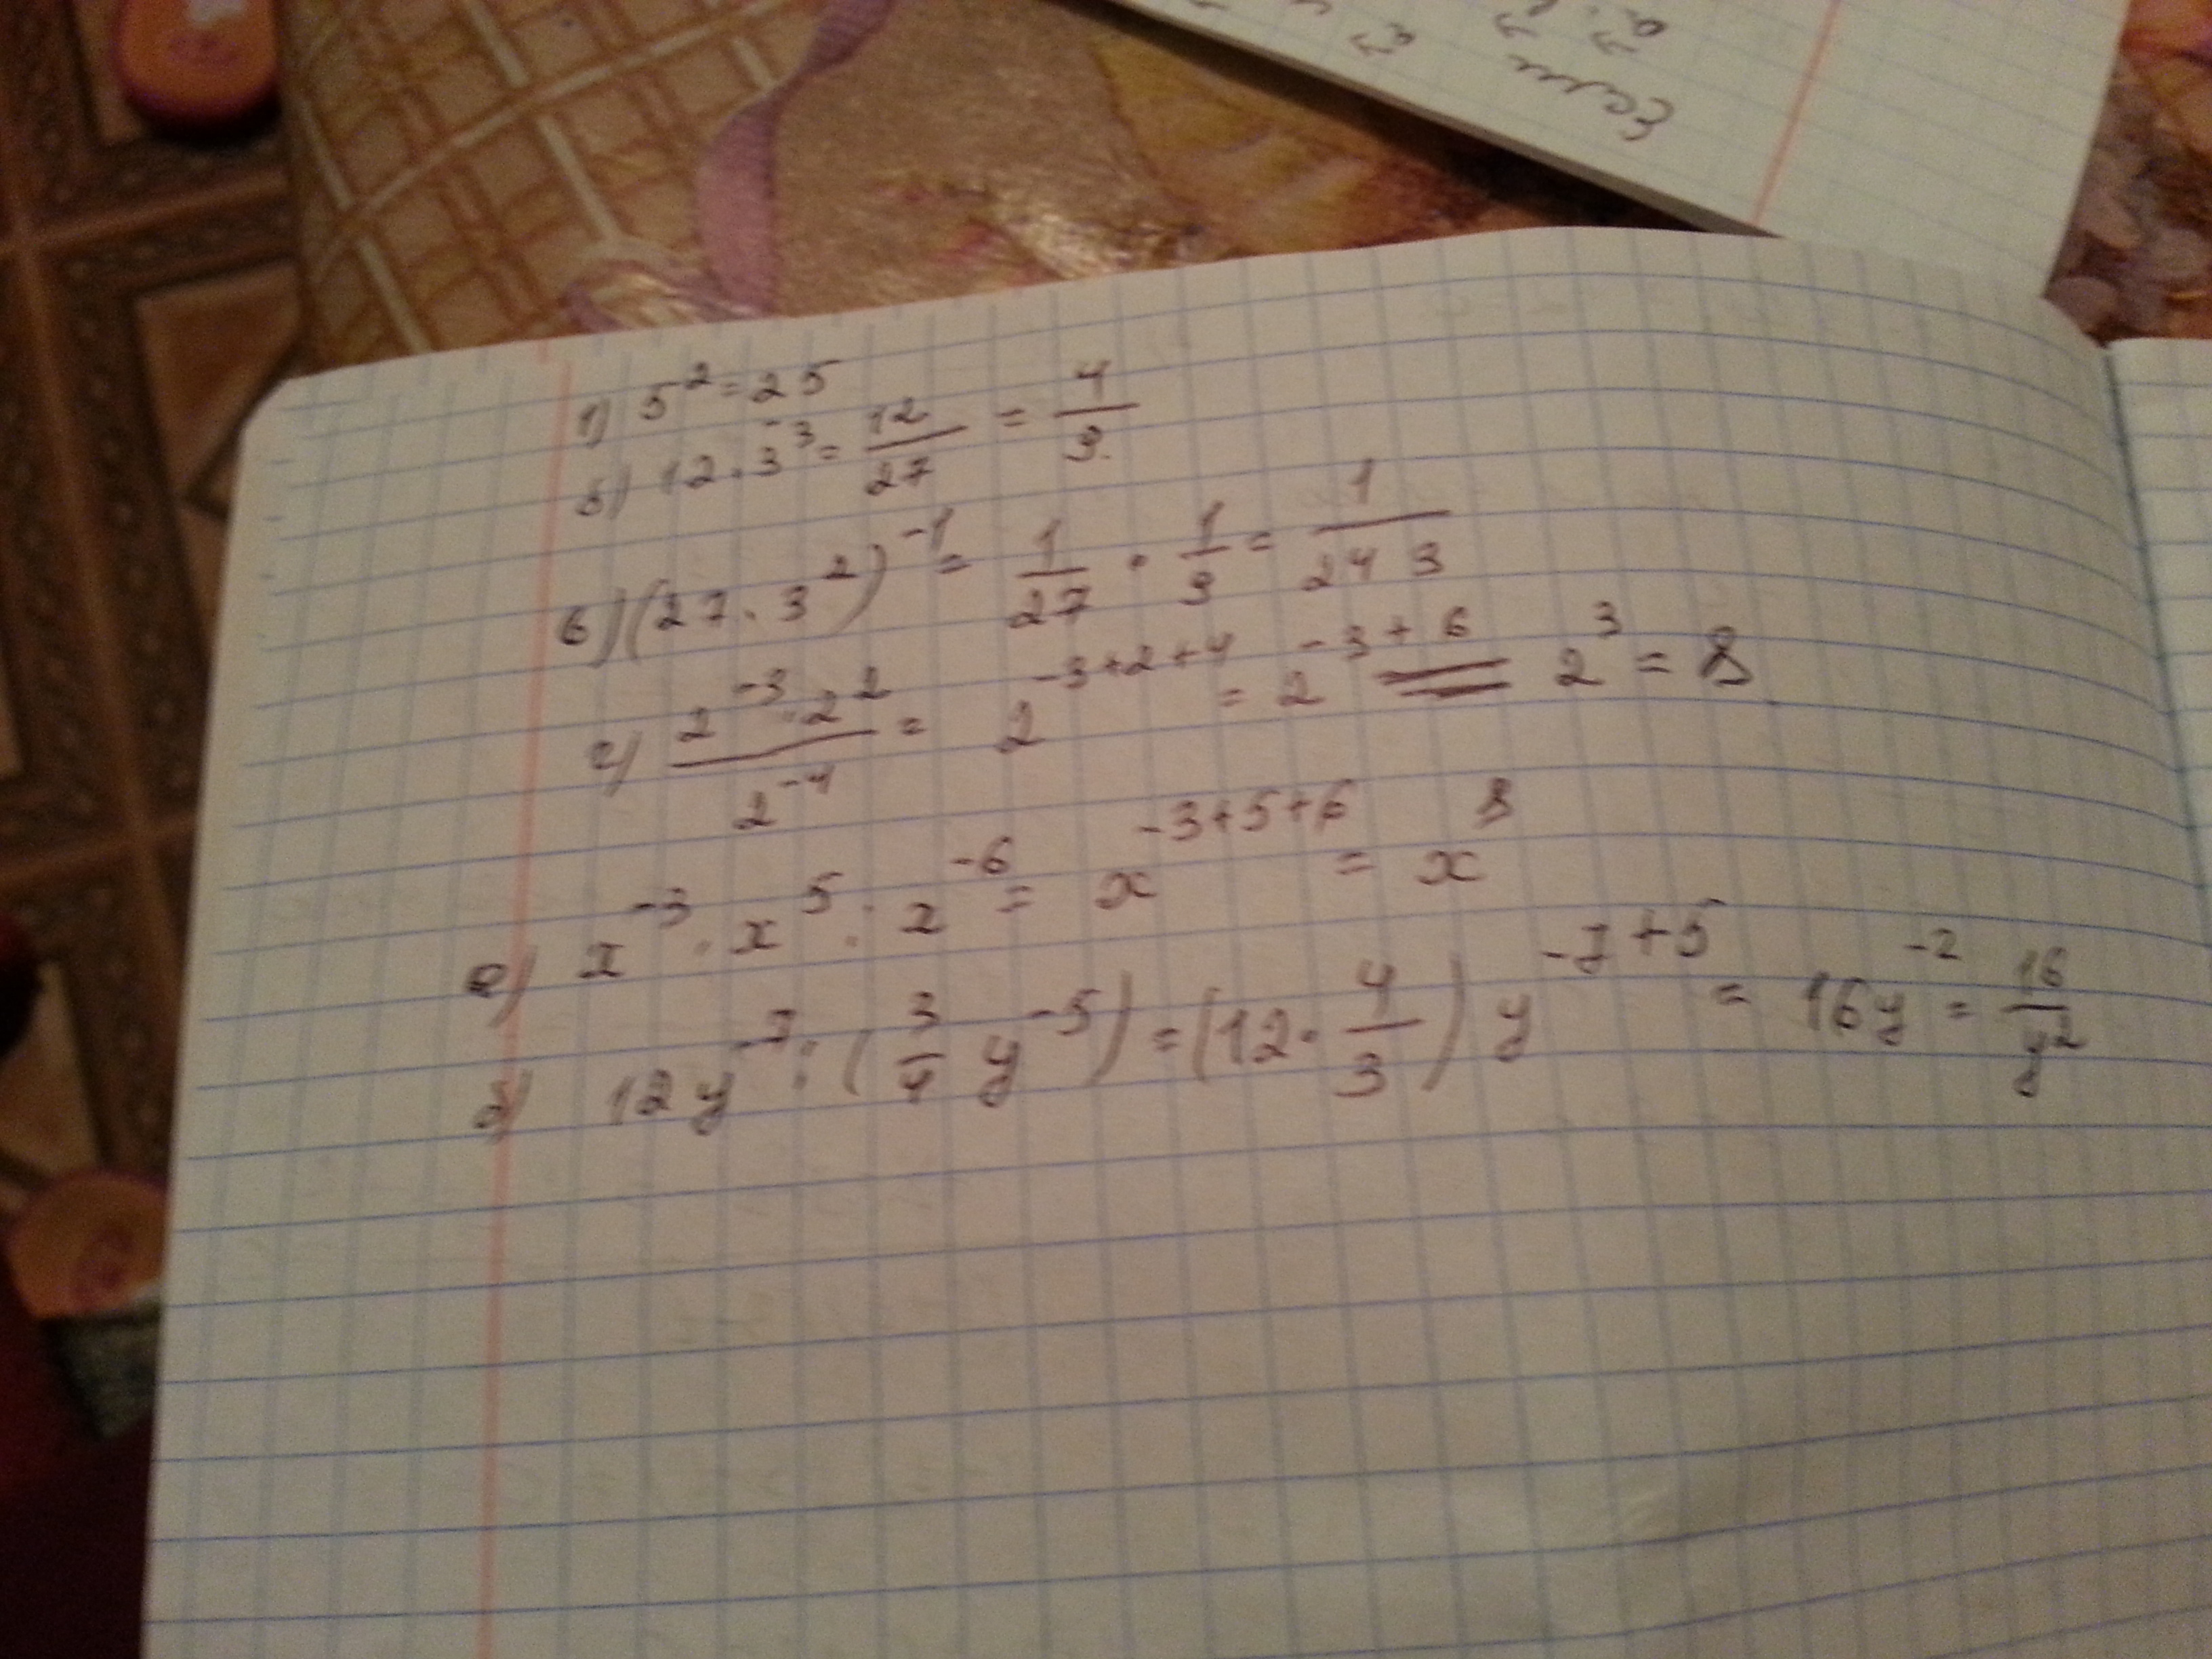 Если
1) 5² = 25
б) 12 · 3⁻³ = 12/27 = 4/9
в) (27 · 3²)⁻¹ = 1/27 · 1/9 = 1/243
г) (2⁻³ · 2²)/2⁻⁴ = 2⁻³⁺²⁺⁴ = 2⁻³⁺⁶ = 2³ = 8
а) x⁻³ · x⁵ : x⁻⁶ = x⁻³⁺⁵⁺⁶ = x⁸
б) 12y⁻⁷ : (3/4 y⁻⁵) = (12 · 4/3) y⁻⁷⁺⁵ = 16y⁻² = 16/y²